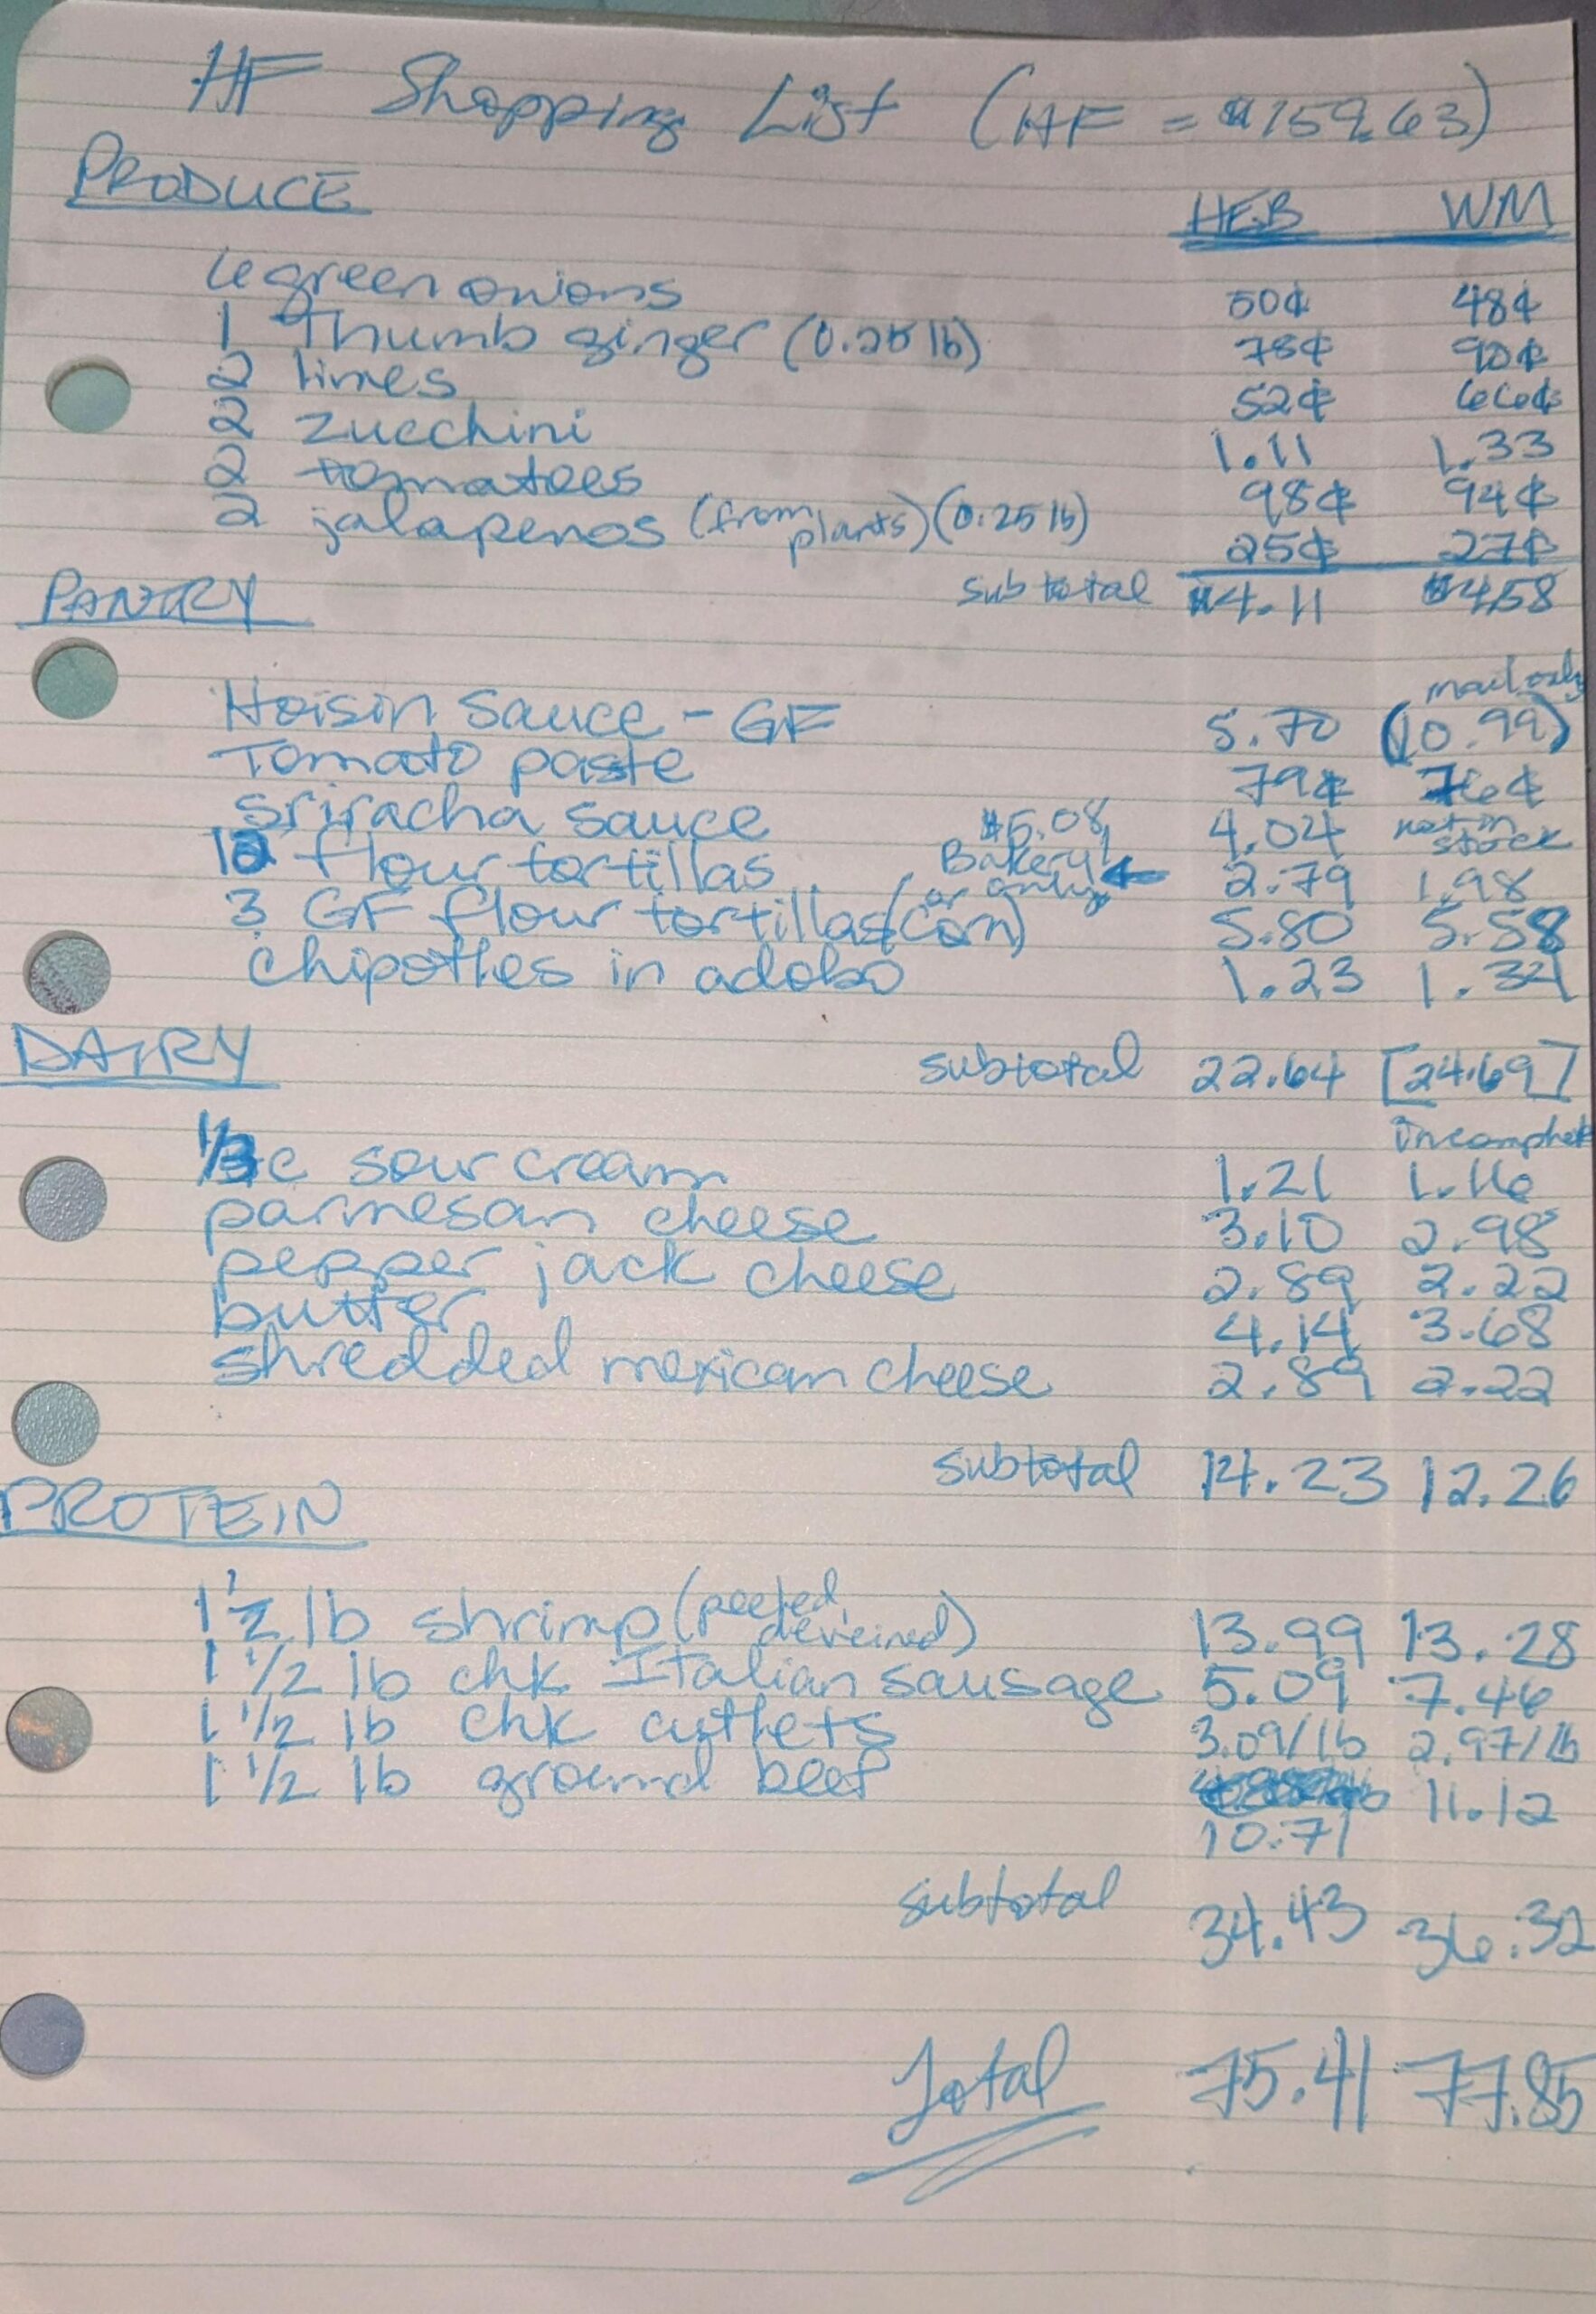 HF Shopping List (HF = $159.63)
PRODUCE
HEB WM
6 green onions 50¢ 48¢
1 Thumb ginger (0.25 lb) 78¢ 90¢
2 limes 52¢ 66¢
2 zucchini 1.11 1.33
2 tomatoes 98¢ 94¢
2 jalapenos (from plants) (0.25 lb) 25¢ 27¢
subtotal $4.11 $4.58
PANTRY
mail only
Hoisin Sauce - GF 5.70 (10.99)
Tomato paste 79¢ 76¢
Sriracha sauce 4.04 not in stock
10 flour tortillas $5.08 Bakery! 2.79 1.98
3 GF flour tortillas (or corn) only 5.80 5.58
chipotles in adobo 1.23 1.34
subtotal 22.64 [24.69]
incomplete
DAIRY
1/3 c sour cream 1.21 1.16
parmesan cheese 3.10 2.98
pepper jack cheese 2.89 2.22
butter 4.14 3.68
shredded mexican cheese 2.89 2.22
subtotal 14.23 12.26
PROTEIN
1 1/2 lb shrimp (peeled, deveined) 13.99 13.28
1 1/2 lb chk Italian sausage 5.09 7.46
1 1/2 lb chk cutlets 3.09/lb 2.97/lb
1 1/2 lb ground beef 11.12
10.71
subtotal 34.43 36.32
Total 75.41 77.85